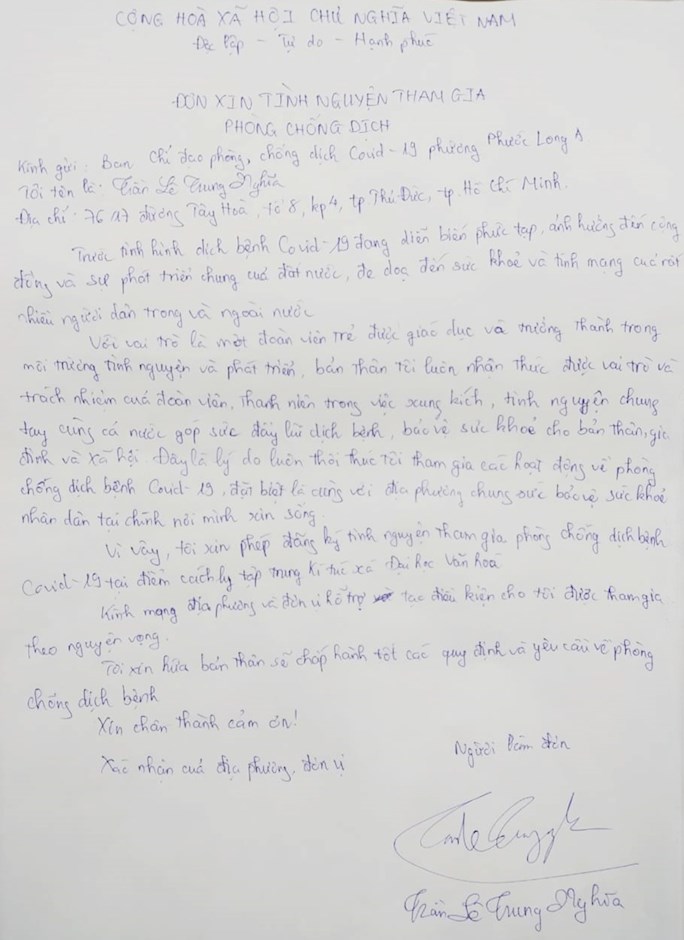 CỘNG HOÀ XÃ HỘI CHỦ NGHĨA VIỆT NAM
Độc lập - Tự do - Hạnh phúc
ĐƠN XIN TÌNH NGUYỆN THAM GIA
PHÒNG CHỐNG DỊCH
Kính gửi: Ban chỉ đạo phòng, chống dịch Covid-19 phường Phước Long A
Tôi tên là: Trần Lê Trung Nghĩa
Địa chỉ: 76/17 đường Tây Hoà, tổ 8, kp4, tp Thủ Đức, tp. Hồ Chí Minh.
Trước tình hình dịch bệnh Covid-19 đang diễn biến phức tạp, ảnh hưởng đến cộng
đồng và sự phát triển chung của đất nước, đe doạ đến sức khoẻ và tính mạng của rất
nhiều người dân trong và ngoài nước
Với vai trò là một đoàn viên trẻ được giáo dục và trưởng thành trong
môi trường tình nguyện và phát triển, bản thân tôi luôn nhận thức được vai trò và
trách nhiệm của đoàn viên, thanh niên trong việc xung kích, tình nguyện chung
tay cùng cả nước góp sức đẩy lùi dịch bệnh, bảo vệ sức khoẻ cho bản thân, gia
đình và xã hội. Đây là lý do luôn thôi thúc tôi tham gia các hoạt động về phòng
chống dịch bệnh Covid-19, đặt biệt là cùng với địa phương chung sức bảo vệ sức khoẻ
nhân dân tại chính nơi mình xin sống.
Vì vậy, tôi xin phép đăng ký tình nguyện tham gia phòng chống dịch bệnh
Covid-19 tại điểm cách ly tập trung Kí túc xá Đại học Văn hoá
Kính mong địa phương và đơn vị hỗ trợ tạo điều kiện cho tôi được tham gia
theo nguyện vọng.
Tôi xin hứa bản thân sẽ chấp hành tốt các quy định và yêu cầu về phòng
chống dịch bệnh
Xin chân thành cảm ơn!
Người làm đơn
Xác nhận của địa phương, đơn vị
Trần Lê Trung Nghĩa